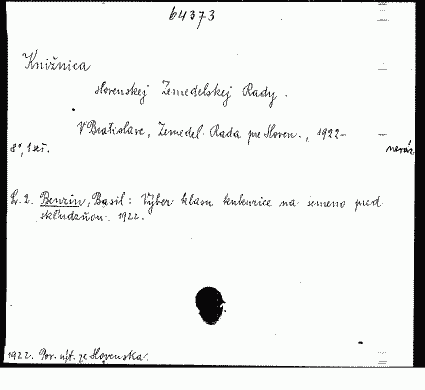 64373
Knižnica
Slovenskej Zemedelskej Rady.
V Bratislave, Zemedel. Rada pre Sloven., 1922-
8°, 1 seř.
neváz.
Č. 2. Benzin, Basil: Výber klasu kukurice na semeno pred
skludzňou. 1922.
1922. Pov. výt. ze Slovenska.